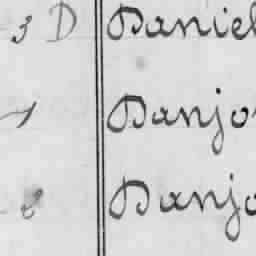 3 D Daniel
1 Danjo
8 Danjo